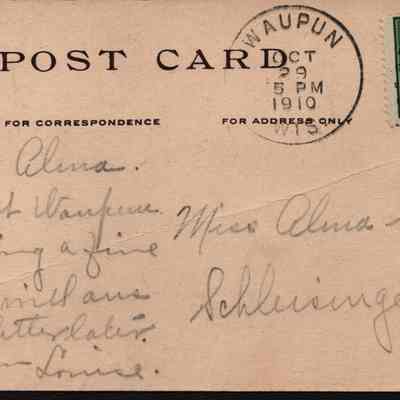 POST CARD
WAUPUN
OCT
29
5 PM
1910
WIS.
FOR CORRESPONDENCE
FOR ADDRESS ONLY
Alma.
Waupun
ing a fine
will ans
letter later.
Louise.
Miss Alma
Schleisinge